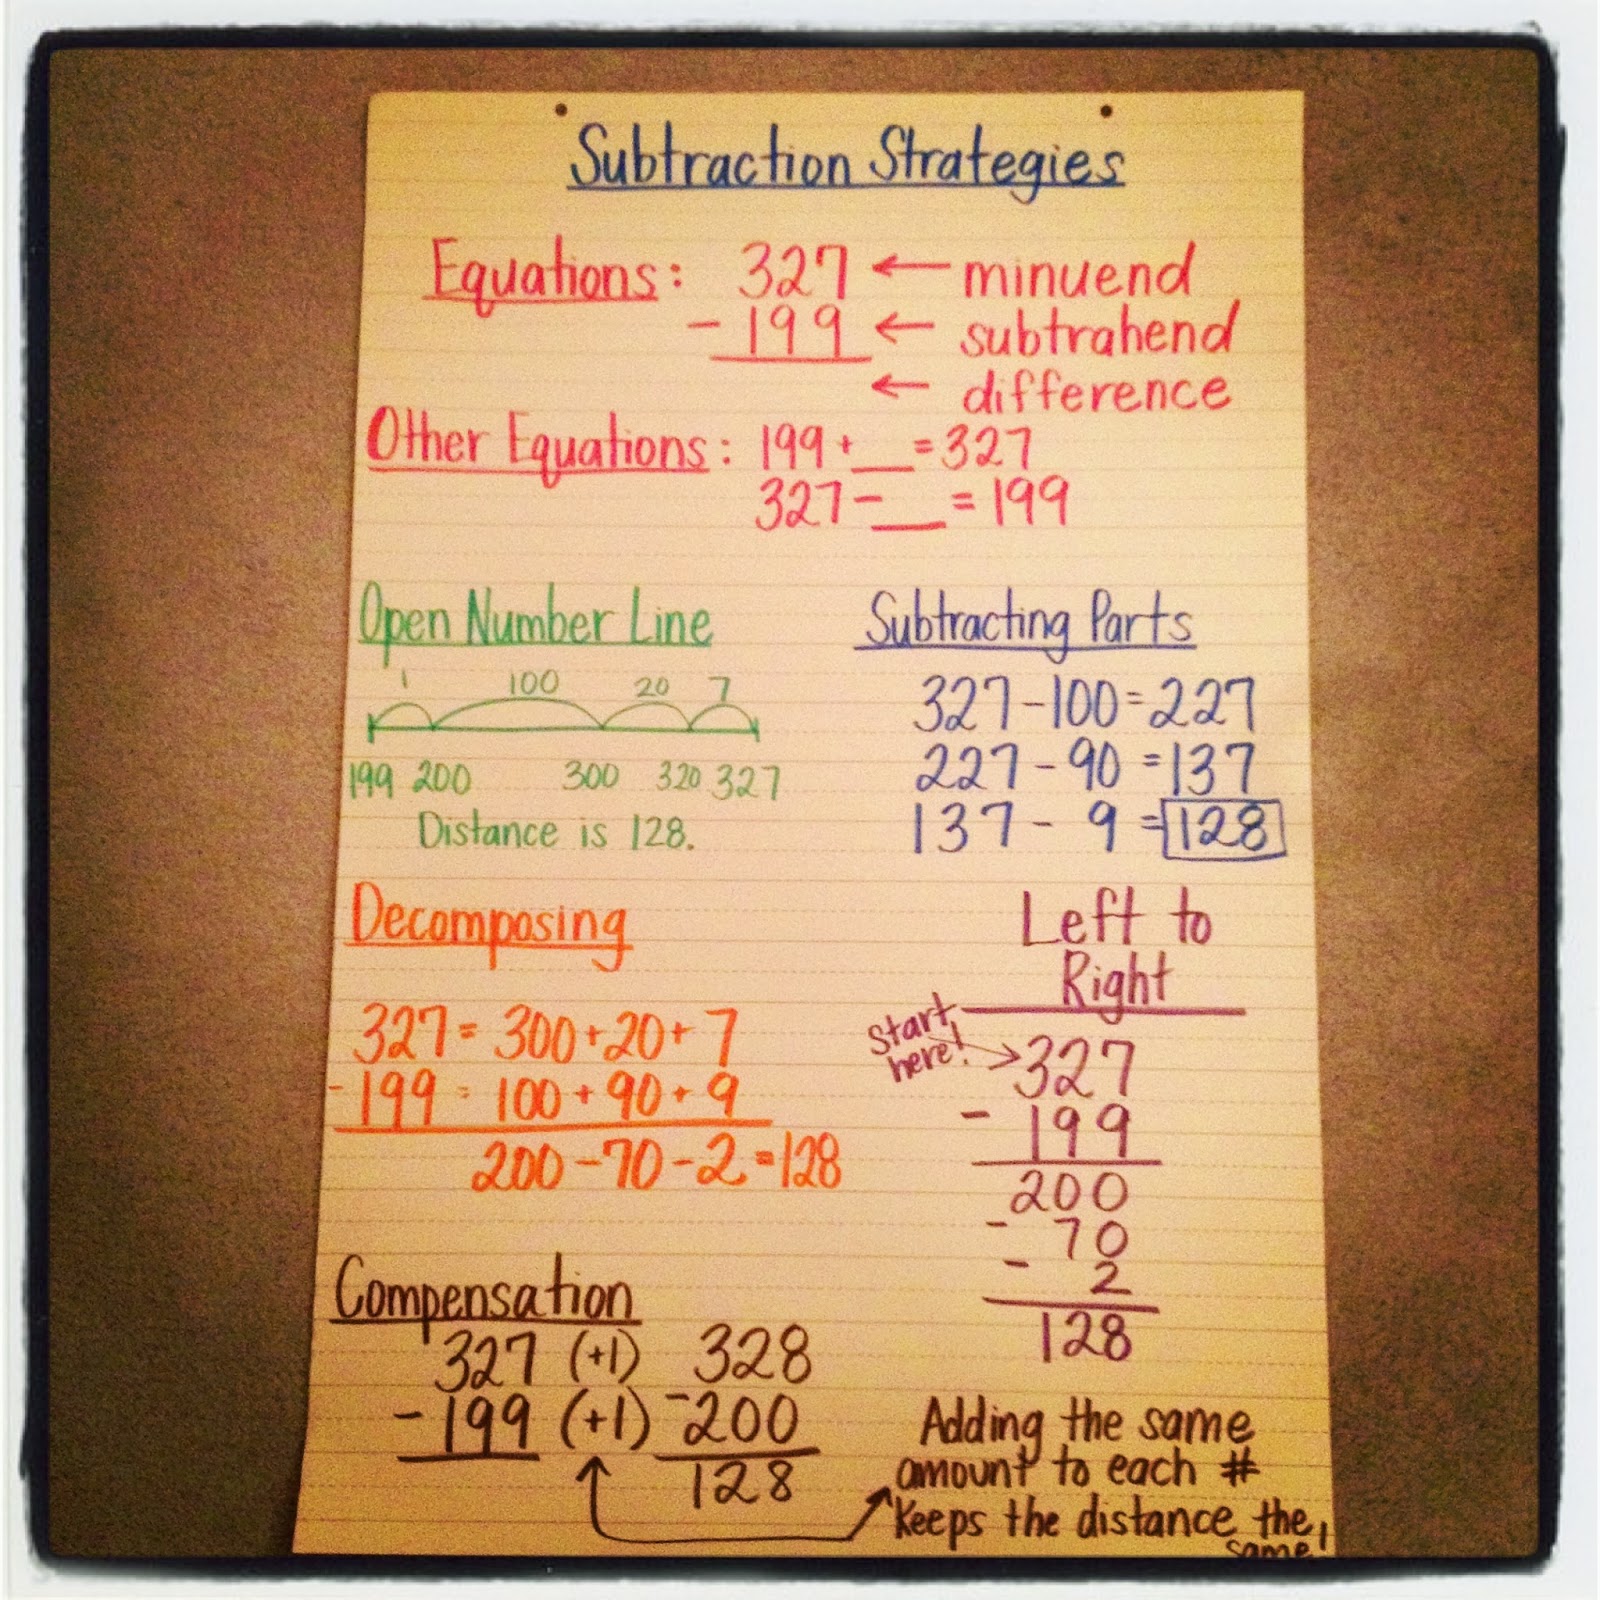 Subtraction Strategies
Equations: 327 ← minuend
- 199 ← subtrahend
← difference
Other Equations: 199 + __ = 327
327 - __ = 199
Open Number Line
1 100 20 7
199 200 300 320 327
Distance is 128.
Subtracting Parts
327 - 100 = 227
227 - 90 = 137
137 - 9 = 128
Decomposing
327 = 300 + 20 + 7
- 199 = 100 + 90 + 9
200 - 70 - 2 = 128
Left to
Right
start
here!
327
- 199
200
- 70
- 2
128
Compensation
327 (+1) 328
- 199 (+1) - 200
128
Adding the same
amount to each #
keeps the distance the
same!